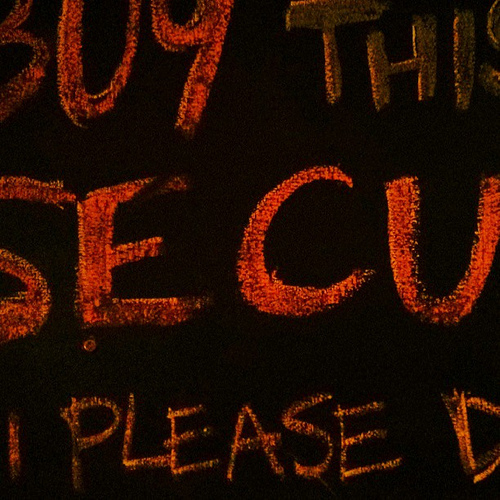 BUY THIS
SECU
PLEASE D